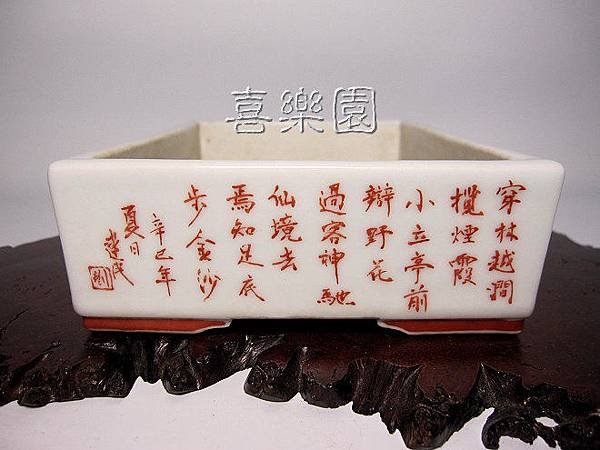 喜樂園
穿林越澗
攬煙霞
小立亭前
辯野花
過客神馳
仙境去
焉知足底
步金沙
辛巳年
夏日
建成